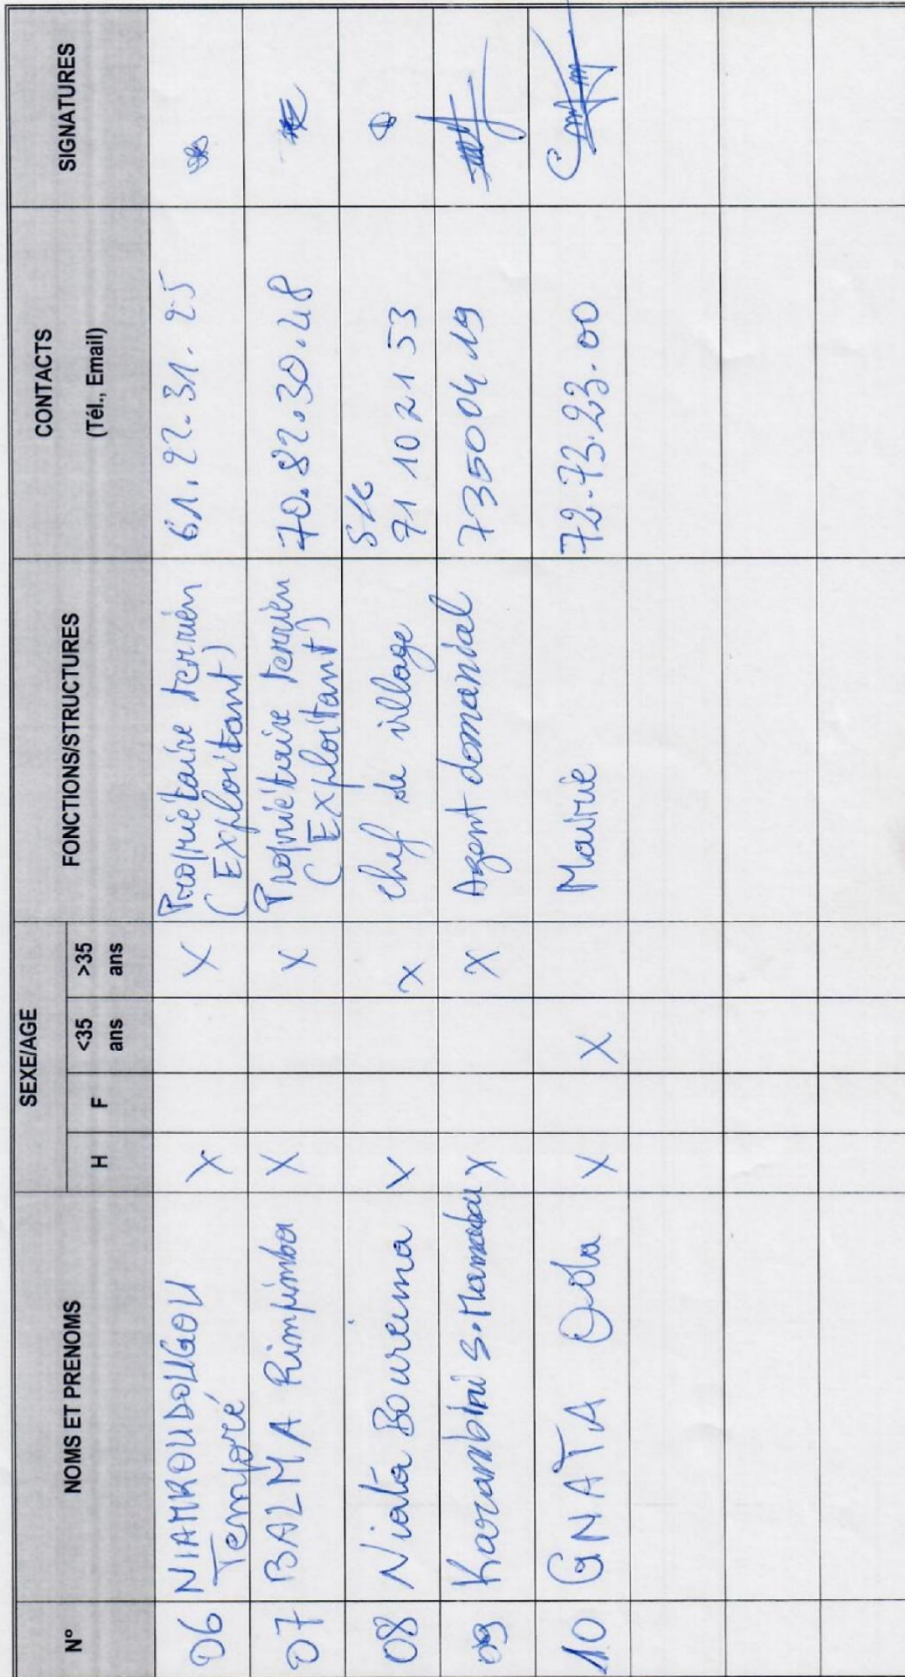 N° NOMS ET PRENOMS SEXE/AGE FONCTIONS/STRUCTURES CONTACTS SIGNATURES
H F <35 ans >35 ans (Tél., Email)
06 NIAMROUDOUGOU Temporé X X Propriétaire terrien (Exploitant) 61.22.31.25
07 BALMA Rimpimba X X Propriétaire terrien (Exploitant) 70.82.30.48
08 Niata Boureima X X chef de village S/c 71 10 21 53
09 Karambiri S. Mamadou X X Agent domanial 73500419
10 GNATA X X Mairie 72.73.23.00